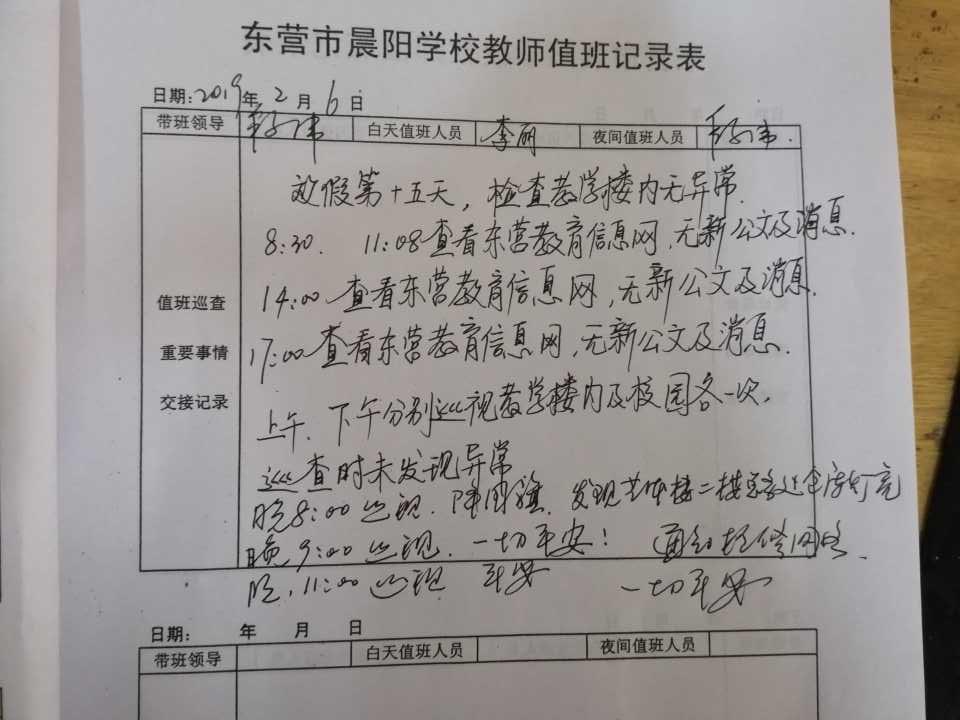 东营市晨阳学校教师值班记录表
日期:2019年2月6日
带班领导 白天值班人员 李丽 夜间值班人员
放假第十五天,检查教学楼内无异常.
8:30. 11:08查看东营教育信息网,无新公文及消息.
值班巡查 14:00 查看东营教育信息网,无新公文及消息.
重要事情 17:00查看东营教育信息网,无新公文及消息.
交接记录 上午、下午分别巡视教学楼内及校园各一次,
巡查时未发现异常
晚8:00巡视.降国旗.发现 楼二楼 灯亮
晚,9:00巡视.一切平安!
晚.11:00巡视 平安 一切平安
日期: 年 月 日
带班领导 白天值班人员 夜间值班人员